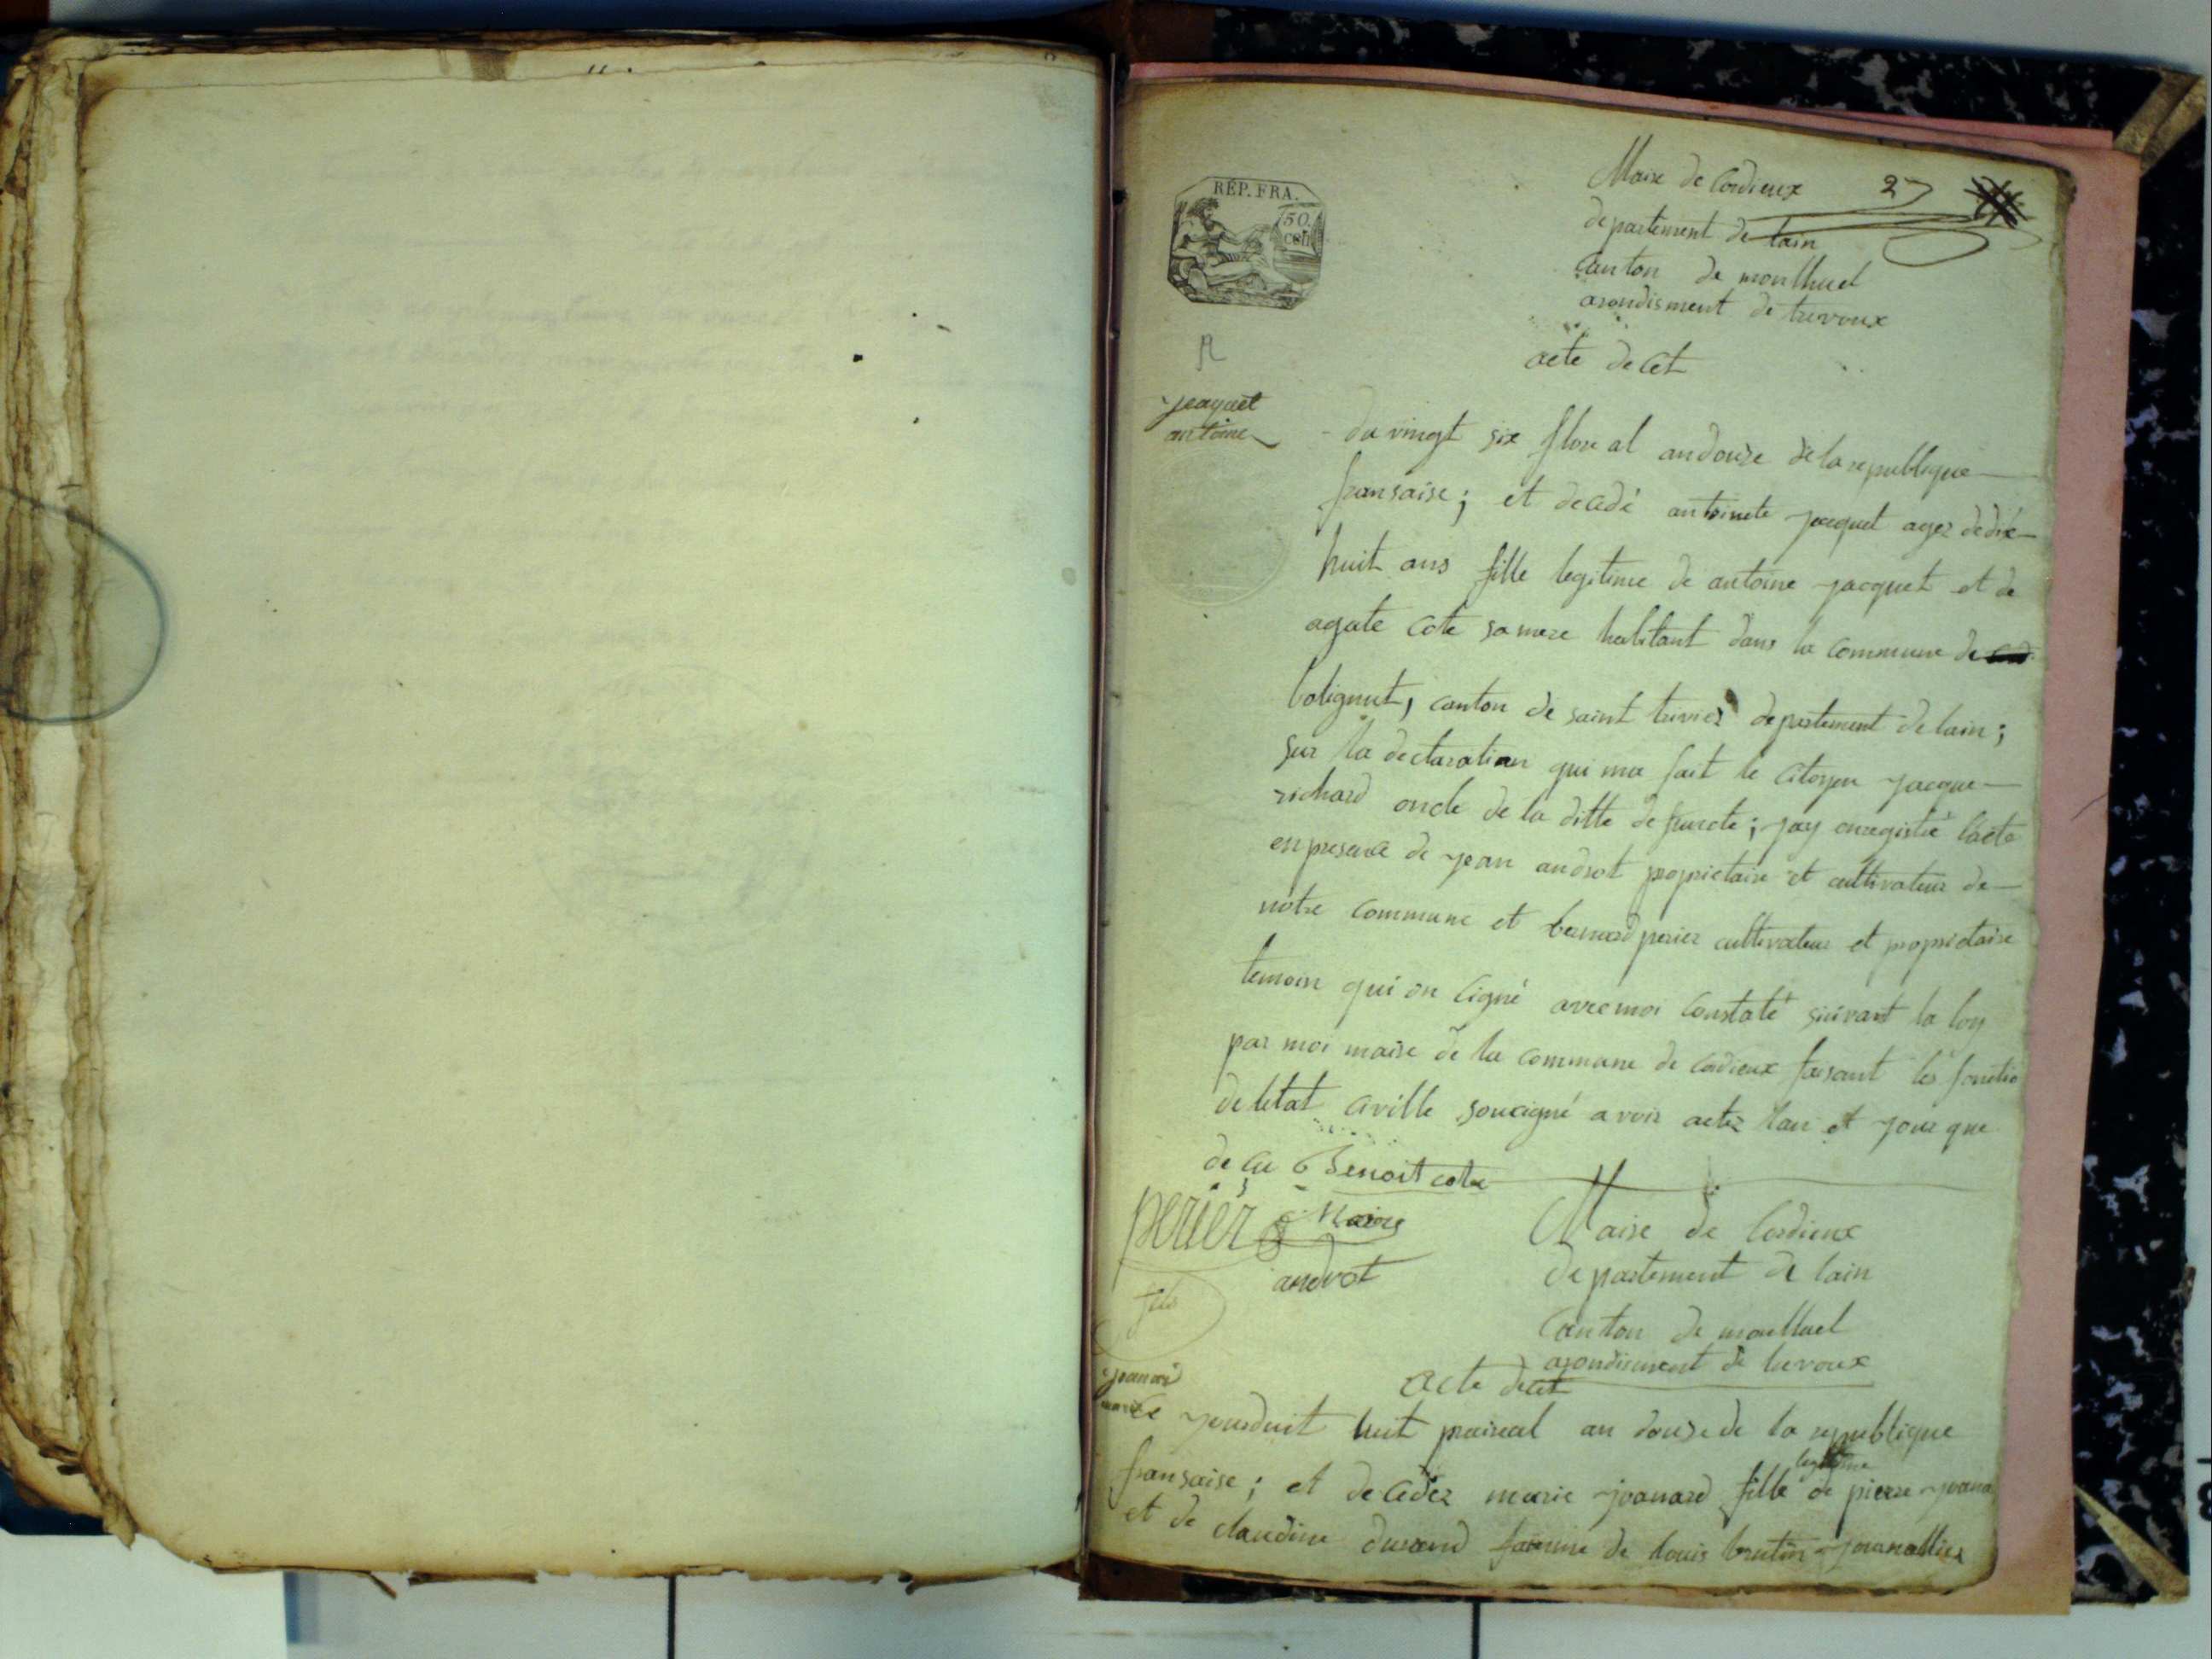 RÉP. FRA.
50
cen
Maire de Cordieux 27
departement de lain
Canton de monlhuel
arondisment de trevoux
acte de cet
jaquet
antoine
du vingt six floreal an douze de la republique
fransaise; et decedé antoinete jacquet agez de dix
huit ans fille legitime de antoine jacquet et de
agate cote sa mere habitant dans la commune de
bolignut, canton de saint trivier departement de lain;
sur la declaration qui ma fait le citoyen jacque
richard oncle de la ditte defuncte; jay enregistré lacte
en presence de jean androt proprietaire et cultivateur de
notre commune et bernard perier cultivateur et proprietaire
temoin qui on signé avec moi constaté suivant la loy
par moi maire de la commune de cordieux faisant les fonctio
de letat civille soucigné avoir actez lan et jour que
de cu Benoit cote
perier maire
androt
fils
Maire de Cordieux
departement de lain
Canton de monlluel
arondisment de trevoux
acte decet
joanar
marie
Ce jourduit huit praireal an douse de la republique
legitime
fransaise; et decedez marie joanard fille de pierre joana
et de claudine durand famme de louis brutin journallier